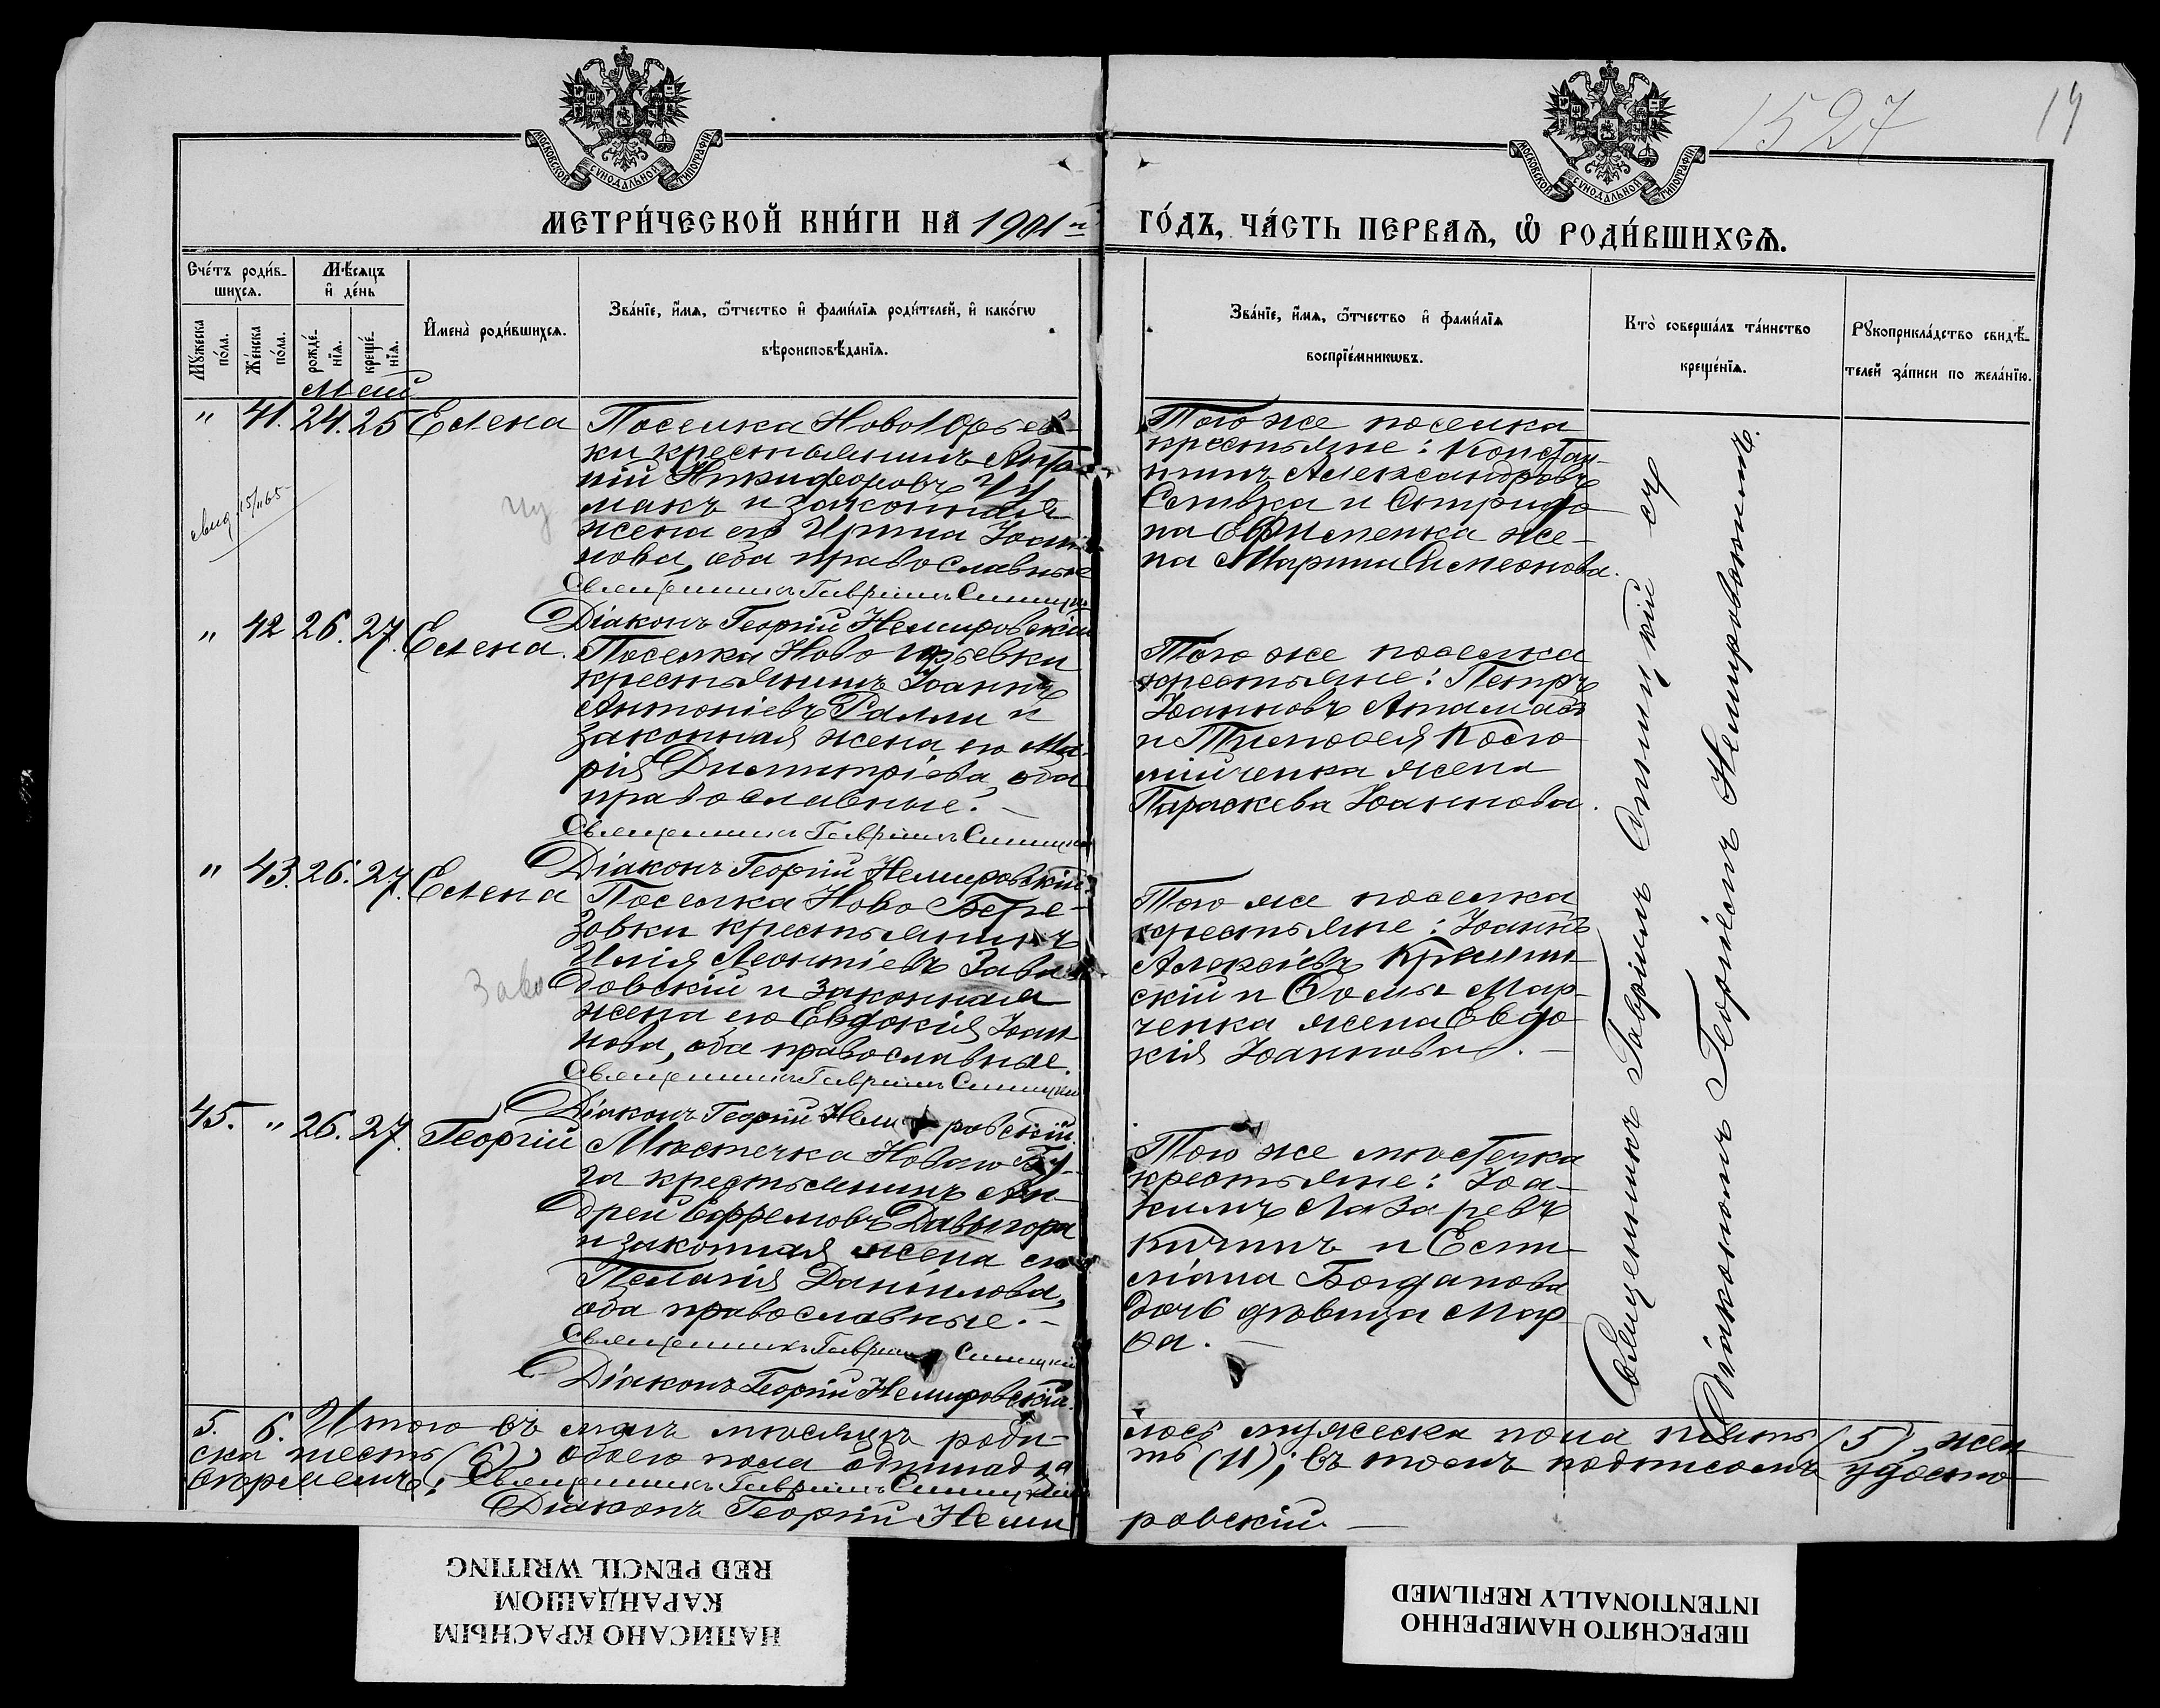 1527
19
МОСКОВСКОЙ СѴНОДАЛЬНОЙ ТИПОГРАФІИ
МОСКОВСКОЙ СѴНОДАЛЬНОЙ ТИПОГРАФІИ
МЕТРИ́ЧЕСКОЙ КНИ́ГИ НА 1901 й ГО́ДЪ, ЧА́СТЬ ПЕРВАѦ, Ѡ҆ РОДИ́ВШИХСѦ.
Сче́тъ роди́в-
шихсѧ.
Мѣ́сѧцъ
и҆ де́нь
Мꙋ́жеска
по́ла.
Же́нска
по́ла.
рожде́-
нїѧ.
креще́-
нїѧ.
И҆мена̀ роди́вшихсѧ.
Зва́нїе, и҆́мѧ, ѻ҆́тчество и҆ фами́лїѧ роди́телей, и҆ како́гѡ
вѣроисповѣ́данїѧ.
Зва́нїе, и҆́мѧ, ѻ҆́тчество и҆ фами́лїѧ
воспрїе́мникѡвъ.
Кто̀ соверша́лъ та́инство
креще́нїѧ.
Рꙋкоприкла́дство свидѣ́-
телей за́писи по жела́нїю.
Май
" 41. 24. 25 Елена
свид 15/II 65
Поселка НовоЮрьев-
ки крестьянинъ Анто-
ній Никифоровъ Чу
макъ и законная
жена его Ирина Іоан-
нова, оба православные
Священникъ Гавріилъ Синицкій
Діаконъ Георгій Немировскій
Того же поселка
крестьяне: Констан-
тинъ Александровъ
Сливка и Спиридо
на Ефименка же-
на Марина Симеонова.
" 42 26. 27. Елена.
Поселка Ново Юрьевки
крестьянинъ Іоаннъ
Антоніевъ Ралли и
законная жена его Ма-
рія Димитріева, оба
православные.
Священникъ Гавріилъ Синицкій
Діаконъ Георгій Немировскій.
Того же поселка
крестьяне: Петръ
Іоанновъ
и Тимофея Косто
жена
Параскева Іоаннова.
" 43. 26. 27. Елена
Заво
Поселка Ново Бере-
зовки крестьянинъ
Илія Леонтіевъ Зава
довскій и законная
жена его Евдокія Іоан
нова, оба православные.
Священникъ Гавріилъ Синицкій
Діаконъ Георгій Немировскій.
Того же поселка
крестьяне: Іоаннъ
Алексіевъ
скій и Ѳомы Мар-
ченка жена Евдо
кія Іоаннова.
45. " 26. 27. Георгій
Мѣстечка Новаго Бу-
га крестьянинъ Ан-
дрей Ефремовъ Давыгора
и законная жена его
Пелагія Даніилова,
оба православные.
Священникъ Гавріилъ Синицкій
Діаконъ Георгій Немировскій.
Того же мѣстечка
крестьяне: Іоа-
кимъ Лазаревъ
Кичинъ и
Богданова
дочь дѣвица Мар
ѳа.
Священникъ Гавріилъ Синицкій съ
Діакономъ Георгіемъ Немировскимъ.
5. 6. Итого въ маѣ мѣсяцѣ роди-лось мужеска пола пять (5), жен
ска шесть (6), обоего пола одиннадца ть (11); въ томъ подписомъ удосто
Священникъ Гавріилъ Синицкій
Діаконъ Георгій Неми ровскій.
НАПИСАНО КРАСНЫМ
КАРАНДАШОМ
RED PENCIL WRITING
ПЕРЕСНЯТО НАМЕРЕННО
INTENTIONALLY REFILMED